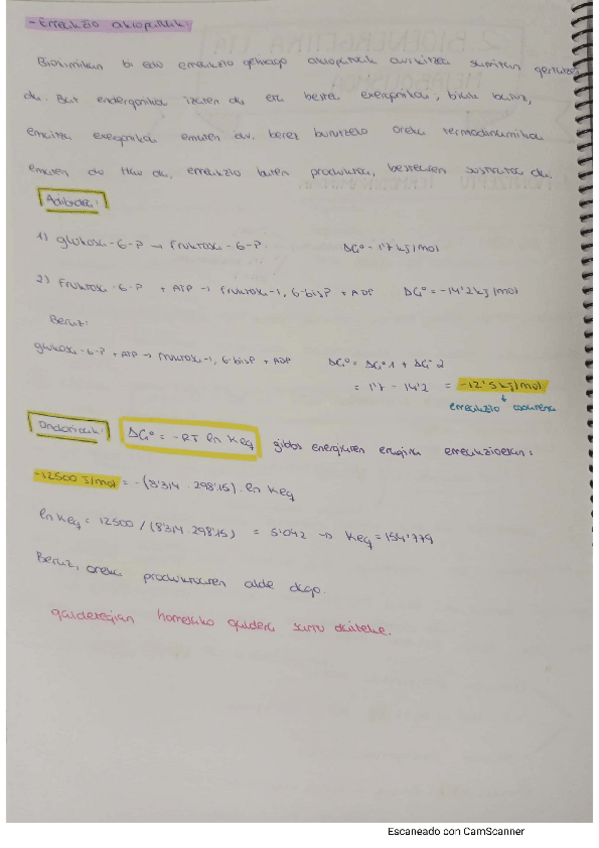 - Erreakzio akoplatuak:
Biokimikan bi edo erreakzio gehiago akoplaturik aurkitzea sarritan gertatzen
da. Bat endergonikoa izaten da eta bestea exergonikoa, biak batuz,
emaitza exergonikoa ematen du. berez burutzeko oreka termodinamikoa
ematen da. Hau da, erreakzio baten produktua, bestearen sustratua da.
Adibidea:
1) glukosa-6-P → Fruktosa-6-P. ΔG°= 1'7 kJ/mol
2) Fruktosa-6-P + ATP → Fruktosa-1,6-bisP + ADP ΔG°= -14'2 kJ/mol
Beraz:
glukosa-6-P + ATP → fruktosa-1,6-bisP + ADP ΔG°= ΔG°1 + ΔG°2
= 1'7 - 14'2 = -12'5 kJ/mol
erreakzio
Ondorioak: ΔG° = -RT ln Keq gibbs energiaren eragina erreakzioetan:
-12500 J/mol = -(8'314 · 298'15) · ln Keq
ln Keq = 12500 / (8'314 · 298'15) = 5'042 → Keq = 154'779
Beraz, oreka produktuaren alde dago.
galdetegian horrelako galdera sartu daiteke.
Escaneado con CamScanner